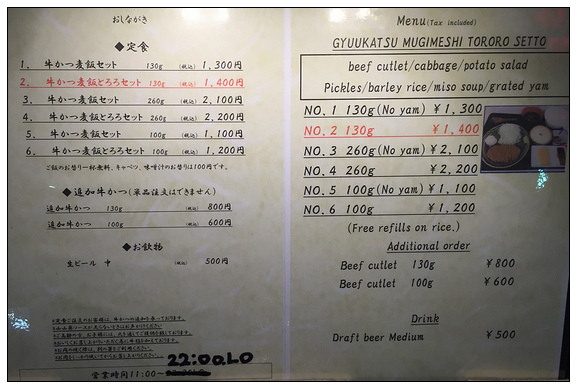 おしながき
◆定食
1. 牛かつ麦飯セット 130g (税込) 1,300円
2. 牛かつ麦飯とろろセット 130g (税込) 1,400円
3. 牛かつ麦飯セット 260g (税込) 2,100円
4. 牛かつ麦飯とろろセット 260g (税込) 2,200円
5. 牛かつ麦飯セット 100g (税込) 1,100円
6. 牛かつ麦飯とろろセット 100g (税込) 1,200円
ご飯のお替り一杯無料、キャベツ、味噌汁のお替りは100円です。
◆追加牛かつ(単品注文はできません)
追加牛かつ 130g (税込) 800円
追加牛かつ 100g (税込) 600円
◆お飲物
生ビール 中 (税込) 500円
営業時間11:00~ 22:00LO
Menu(Tax included)
GYUUKATSU MUGIMESHI TORORO SETTO
beef cutlet/cabbage/potato salad
Pickles/barley rice/miso soup/grated yam
NO.1 130g(No yam) ¥1,300
NO.2 130g ¥1,400
NO.3 260g(No yam) ¥2,100
NO.4 260g ¥2,200
NO.5 100g(No yam) ¥1,100
NO.6 100g ¥1,200
(Free refills on rice.)
Additional order
Beef cutlet 130g ¥800
Beef cutlet 100g ¥600
Drink
Draft beer Medium ¥500